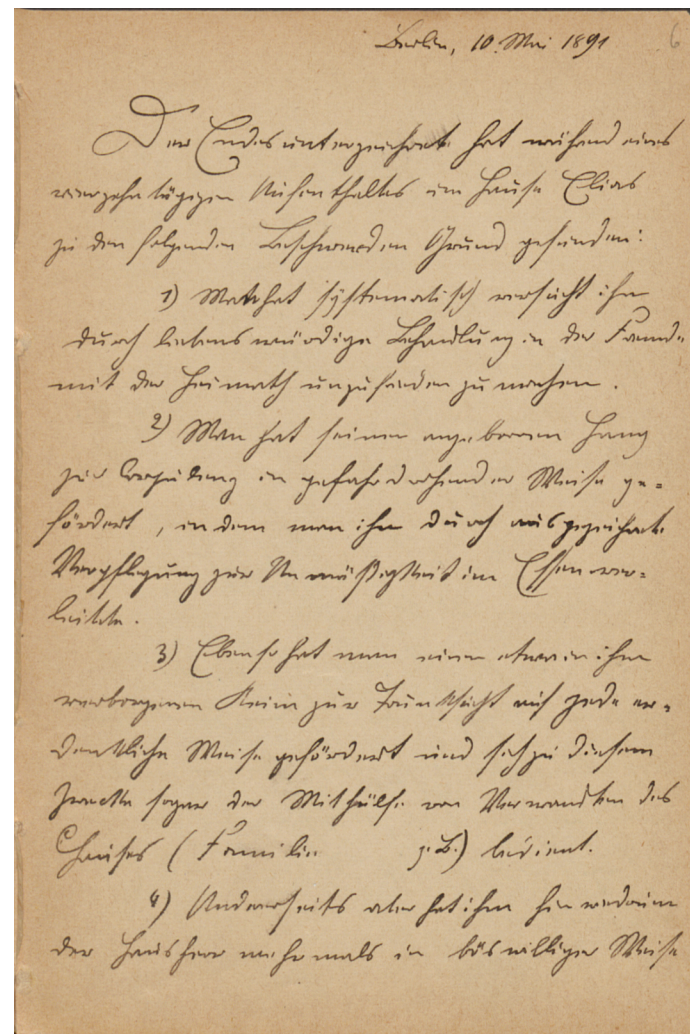 Berlin, 10. Mai 1891
6
Der Endesunterzeichnete hat während eines
vierzehntägigen Aufenthaltes im Hause Elias
zu den folgenden Beschwerden Grund gefunden:
1) Man hat systematisch versucht ihn
durch liebenswürdige Behandlung in der Fremde
mit der Heimath unzufrieden zu machen.
2) Man hat seinen angeborenen Hang
zur Corpulenz in gefahrdrohender Weise ge-
fördert, indem man ihn durch ausgezeichnete
Verpflegung zur Unmäßigkeit im Essen ver-
leitete.
3) Ebenso hat man einen etwa in ihm
verborgenen Keim zur Trunksucht auf jede er-
denkliche Weise gefördert und sich zu diesem
Zwecke sogar der Mithülfe von Verwandten des
Hauses (Familie z.B.) bedient.
4) Andererseits aber hat ihm hinwiederum
der Hausherr mehrmals in böswilliger Weise